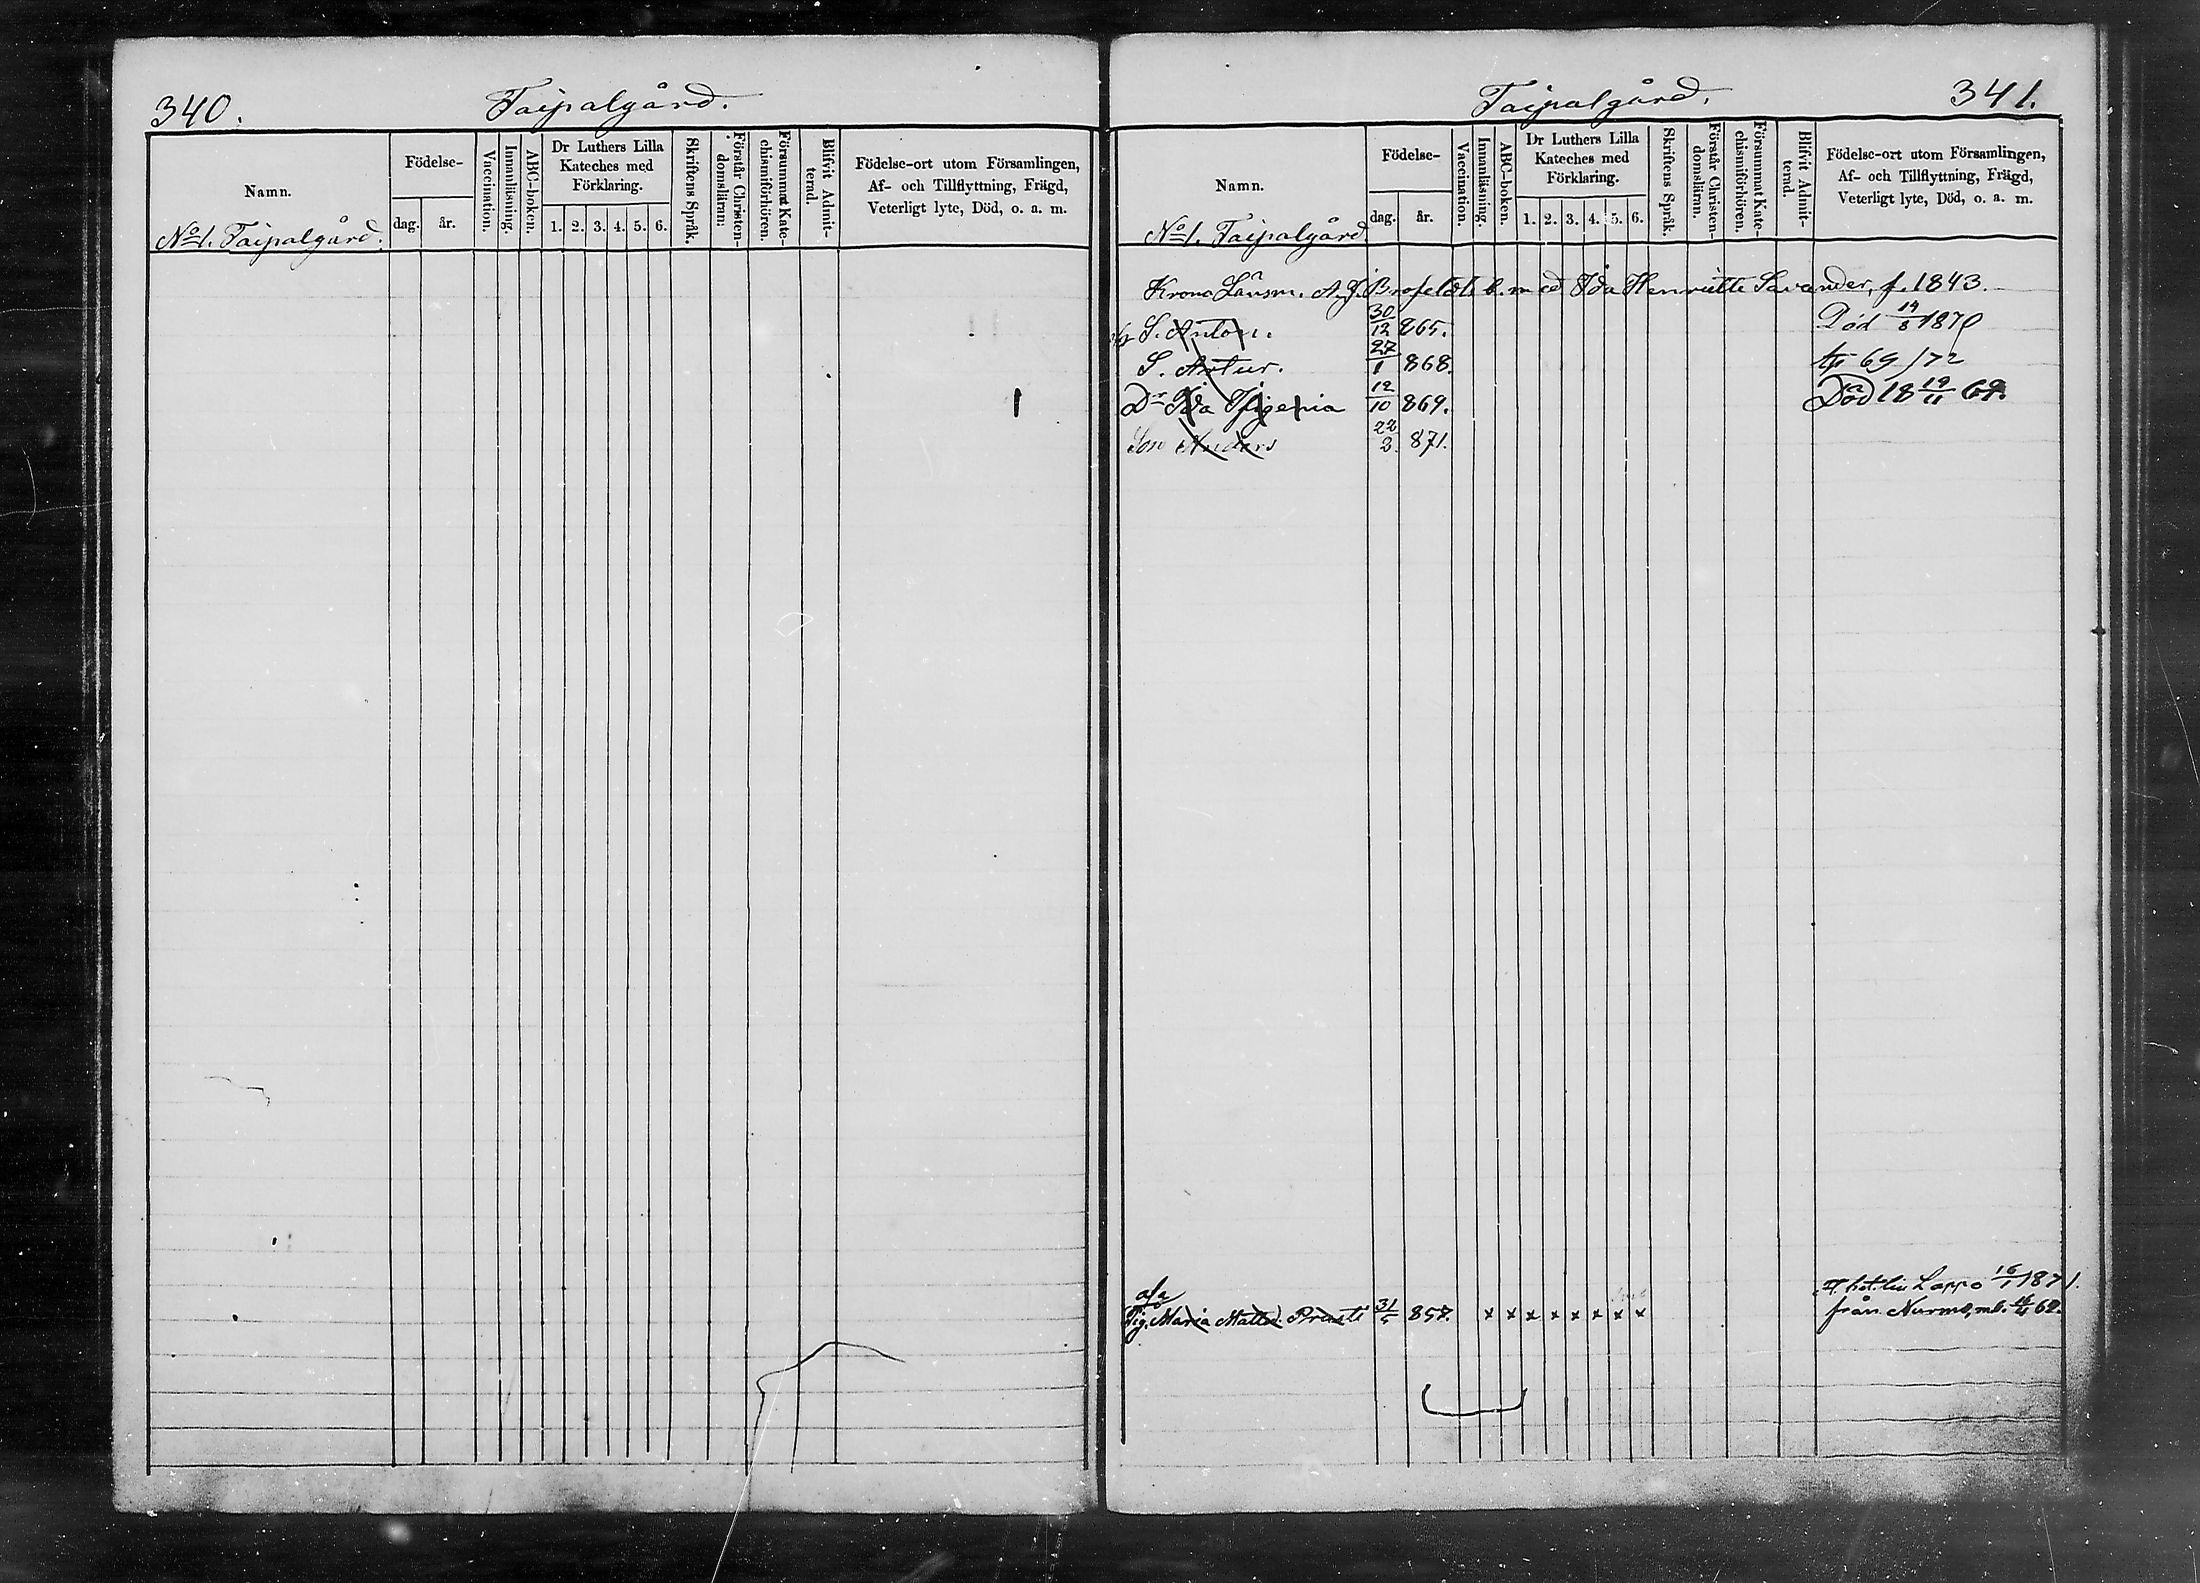 340.
Taipalgård.
Namn.
Födelse-
dag.
år.
Vaccination.
Innanläsning.
ABC-boken.
Dr Luthers Lilla
Kateches med
Förklaring.
1. 2. 3. 4. 5. 6.
Skriftens Språk.
Förstår Christen-
domsläran.
Försummat Kate-
chismiförhören.
Blifvit Admit-
terad.
Födelse-ort utom Församlingen,
Af- och Tillflyttning, Frägd,
Veterligt lyte, Död, o. a. m.
No 1. Taipalgård.
Taipalgård.
341.
Namn.
Födelse-
dag.
år.
Vaccination.
Innanläsning.
ABC-boken.
Dr Luthers Lilla
Kateches med
Förklaring.
1. 2. 3. 4. 5. 6.
Skriftens Språk.
Förstår Christen-
domsläran.
Försummat Kate-
chismiförhören.
Blifvit Admit-
terad.
Födelse-ort utom Församlingen,
Af- och Tillflyttning, Frägd,
Veterligt lyte, Död, o. a. m.
No 1. Taipalgård
Krono Länsm. A. J. Brofeldt b. med Ida Henriette Savander, f. 1843.
S. Anton. 30/12 865. Död 14/8 1870
S. Artur. 27/1 868. 69/72
Dr Ida Ifigenia 12/10 869. Död 18 19/11 69.
Son Anders 22/2. 871.
Lappo 16/1 1871.
Pig. Maria Matted. Prusti 31/5 857. x x x x x x x x från Nurmo, mb. 62.